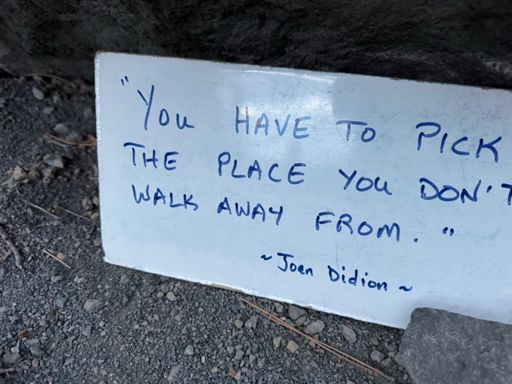 "You HAVE TO PICK
THE PLACE YOU DON'T
WALK AWAY FROM."
~Joan Didion~